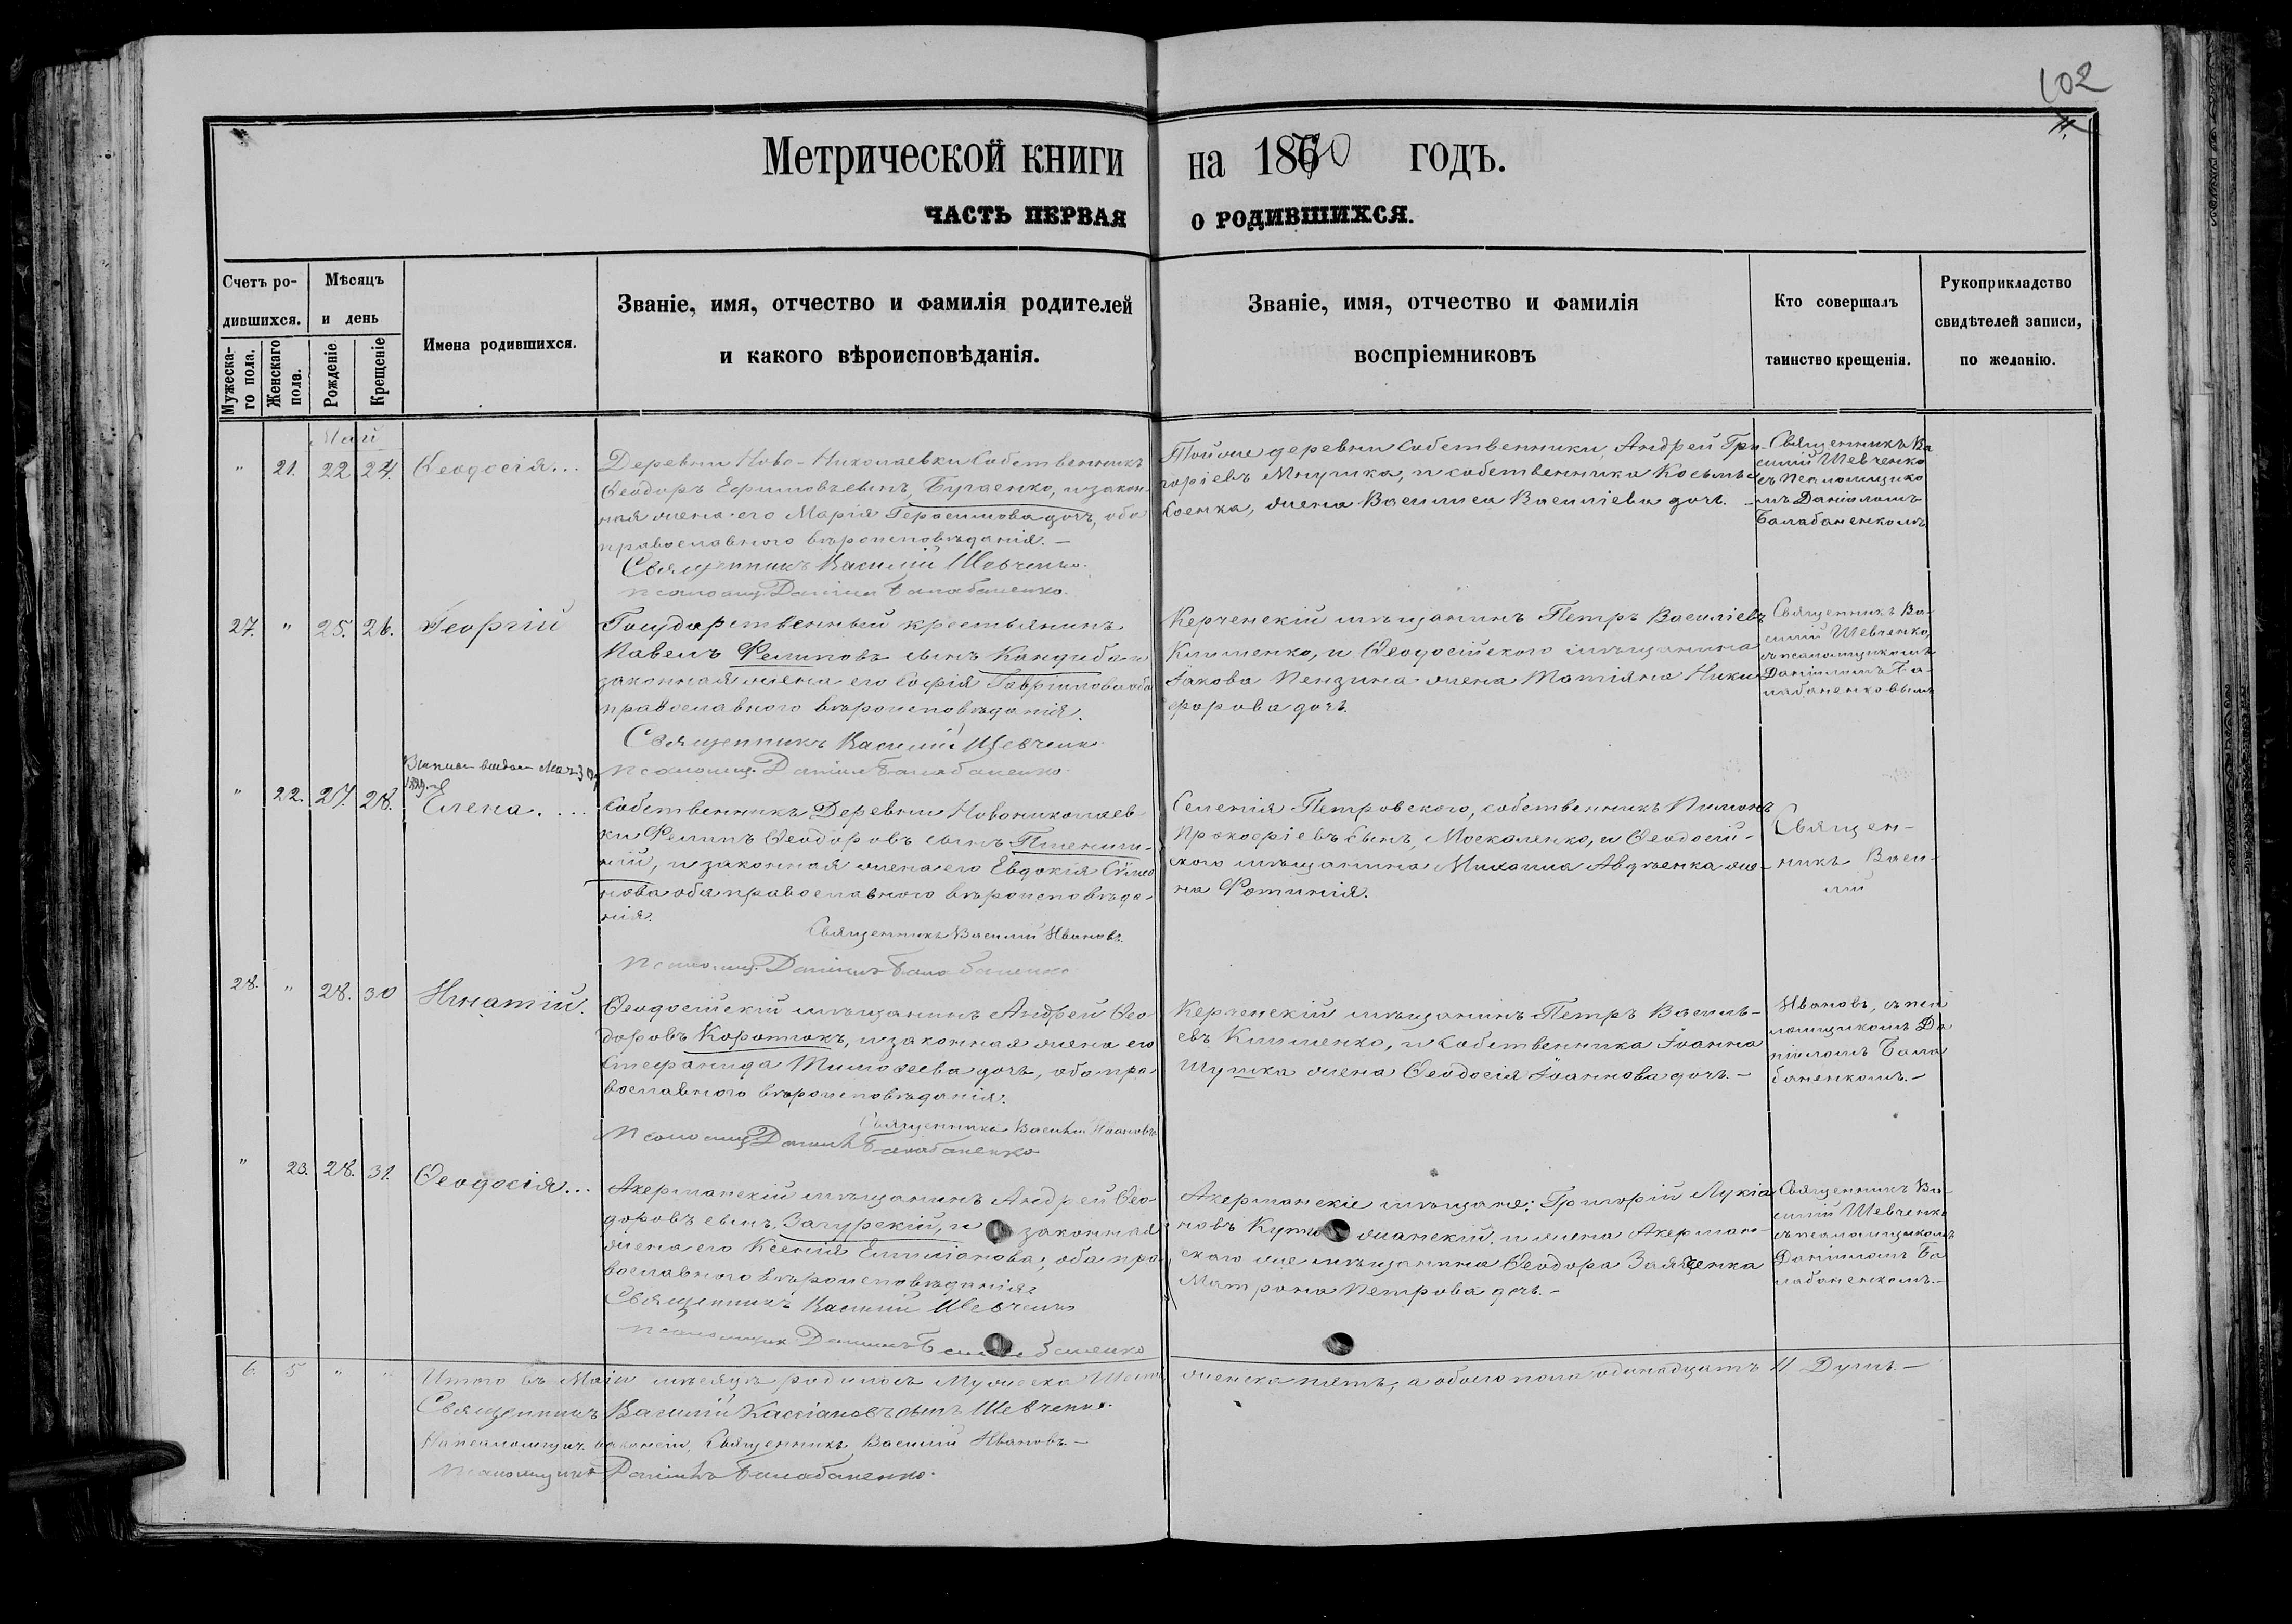 102
Метрической книги на 1870 годъ.
ЧАСТЬ ПЕРВАЯ О РОДИВШИХСЯ.
Счетъ ро-
дившихся.
Мужеска-
го пола.
Женскаго
пола.
Мѣсяцъ
и день
Рожденіе
Крещеніе
Имена родившихся.
Званіе, имя, отчество и фамилія родителей
и какого вѣроисповѣданія.
Званіе, имя, отчество и фамилія
воспріемниковъ
Кто совершалъ
таинство крещенія.
Рукоприкладство
свидѣтелей записи,
по желанію.
Май
" 21. 22 24. Ѳеодосія...
Деревни Ново-Николаевки собственникъ
Ѳеодоръ Ефимовъ сынъ, Бугаенко, и закон-
ная жена его Марія Герасимова дочь, оба
православного вѣроисповѣданія.–
Священникъ Василій Шевченко.
псаломщ. Даніилъ Балабаненко.
Той же деревни собственники, Андрей Гри-
горіевъ Мнушка, и собственника Косьмы
Соенка, жена Василиса Василіева дочь.–
Священникъ Ва
силій Шевченко
съ псаломщико
мъ Даніиломъ
Балабаненкомъ
27. " 25. 26. Георгій
Государственный крестьянинъ
Павелъ Филиповъ сынъ Кандиба и
законная жена его Софія Гаврилова оба
православного вѣроисповѣданія.
Священникъ Василій Шевченко.
псаломщ. Даніилъ Балабаненко.
Керченскій мѣщанинъ Петръ Василіевъ
Клименко, и Ѳеодосійского мѣщанина
Іакова Пензина жена Татіяна Ники
форова дочь.
Священникъ Ва-
силій Шевченко,
съ псаломщикомъ
Даніиломъ Ба-
лабаненковымъ
" 22. 27. 28. Елена....
собственникъ Деревни Новониколаев-
ки Филипъ Ѳеодоровъ сынъ Пшенич-
ній, и законная жена его Евдокія Сумо
нова оба православного вѣроисповѣда-
нія.
Священникъ Василій Ивановъ.
псаломщ. Даніилъ Балабаненко
Селенія Петровского, собственникъ Пимонъ
Прокофіевъ сынъ, Москаленко, и Ѳеодосій-
ского мѣщанина Михаила Авдѣенка же-
на Фотинія.
Священ-
никъ Васи-
лій
28. " 28. 30 Игнатій.
Ѳеодосійскій мѣщанинъ Андрей Ѳео
доровъ Коротокъ, и законная жена его
Стефанида Тимоѳеева дочь, оба пра-
вославного вѣроисповѣданія.
Священникъ Василій Ивановъ
псаломщ Даніилъ Балабаненко
Керченскій мѣщанинъ Петръ Василь-
евъ Клименко, и собственника Іоанна
Шушка жена Ѳеодосія Іоаннова дочь.–
Ивановъ, съ пса
ломщикомъ Да
ніиломъ Бала
баненкомъ.–
" 23. 28. 31. Ѳеодосія...
Акерманскій мѣщанинъ Андрей Ѳео-
доровъ сынъ, Загурскій, и законная
жена его Ксенія Емиліанова; оба пра-
вославного вѣроисповѣданія.
Священникъ Василій Шевченко
псаломщик Даніилъ Балабаненко
Акерманскіе мѣщане: Григорій Лукіа
новъ манскій. и жена Акерман-
ского же мѣщанина Ѳеодора Заяченка
Матрона Петрова дочь.–
Священникъ Ва
силій Шевченко
съ псаломщикомъ
Даніиломъ Ба
лабаненкомъ.–
6. 5 " " Итого въ Маіи мѣсяцѣ родилось Мужеска Шесть женска пять, а обоего пола одинадцать 11 Душъ–
Священникъ Василій Кассіановъ сынъ Шевченко.
На псаломщич. ваканcіи, Священникъ Василій Ивановъ.–
псаломщикъ Даніилъ Балабаненко.